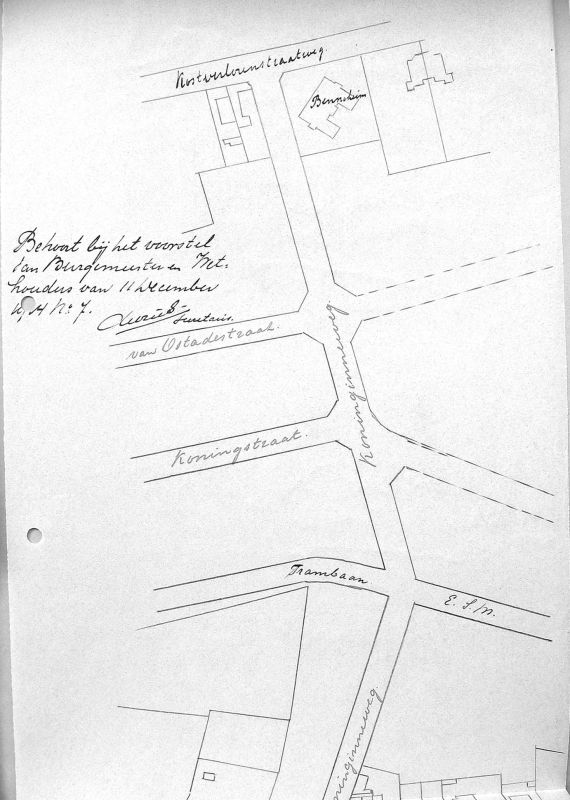 Kostverlorenstraatweg.
Bennekim
Behoort bij het voorstel
van Burgemeester en Wet-
houders van 11 December
No 7.
Secretaris.
van Ostadestraat.
Koninginneweg.
Koningstraat.
Trambaan
E. S. M.
Koninginneweg.